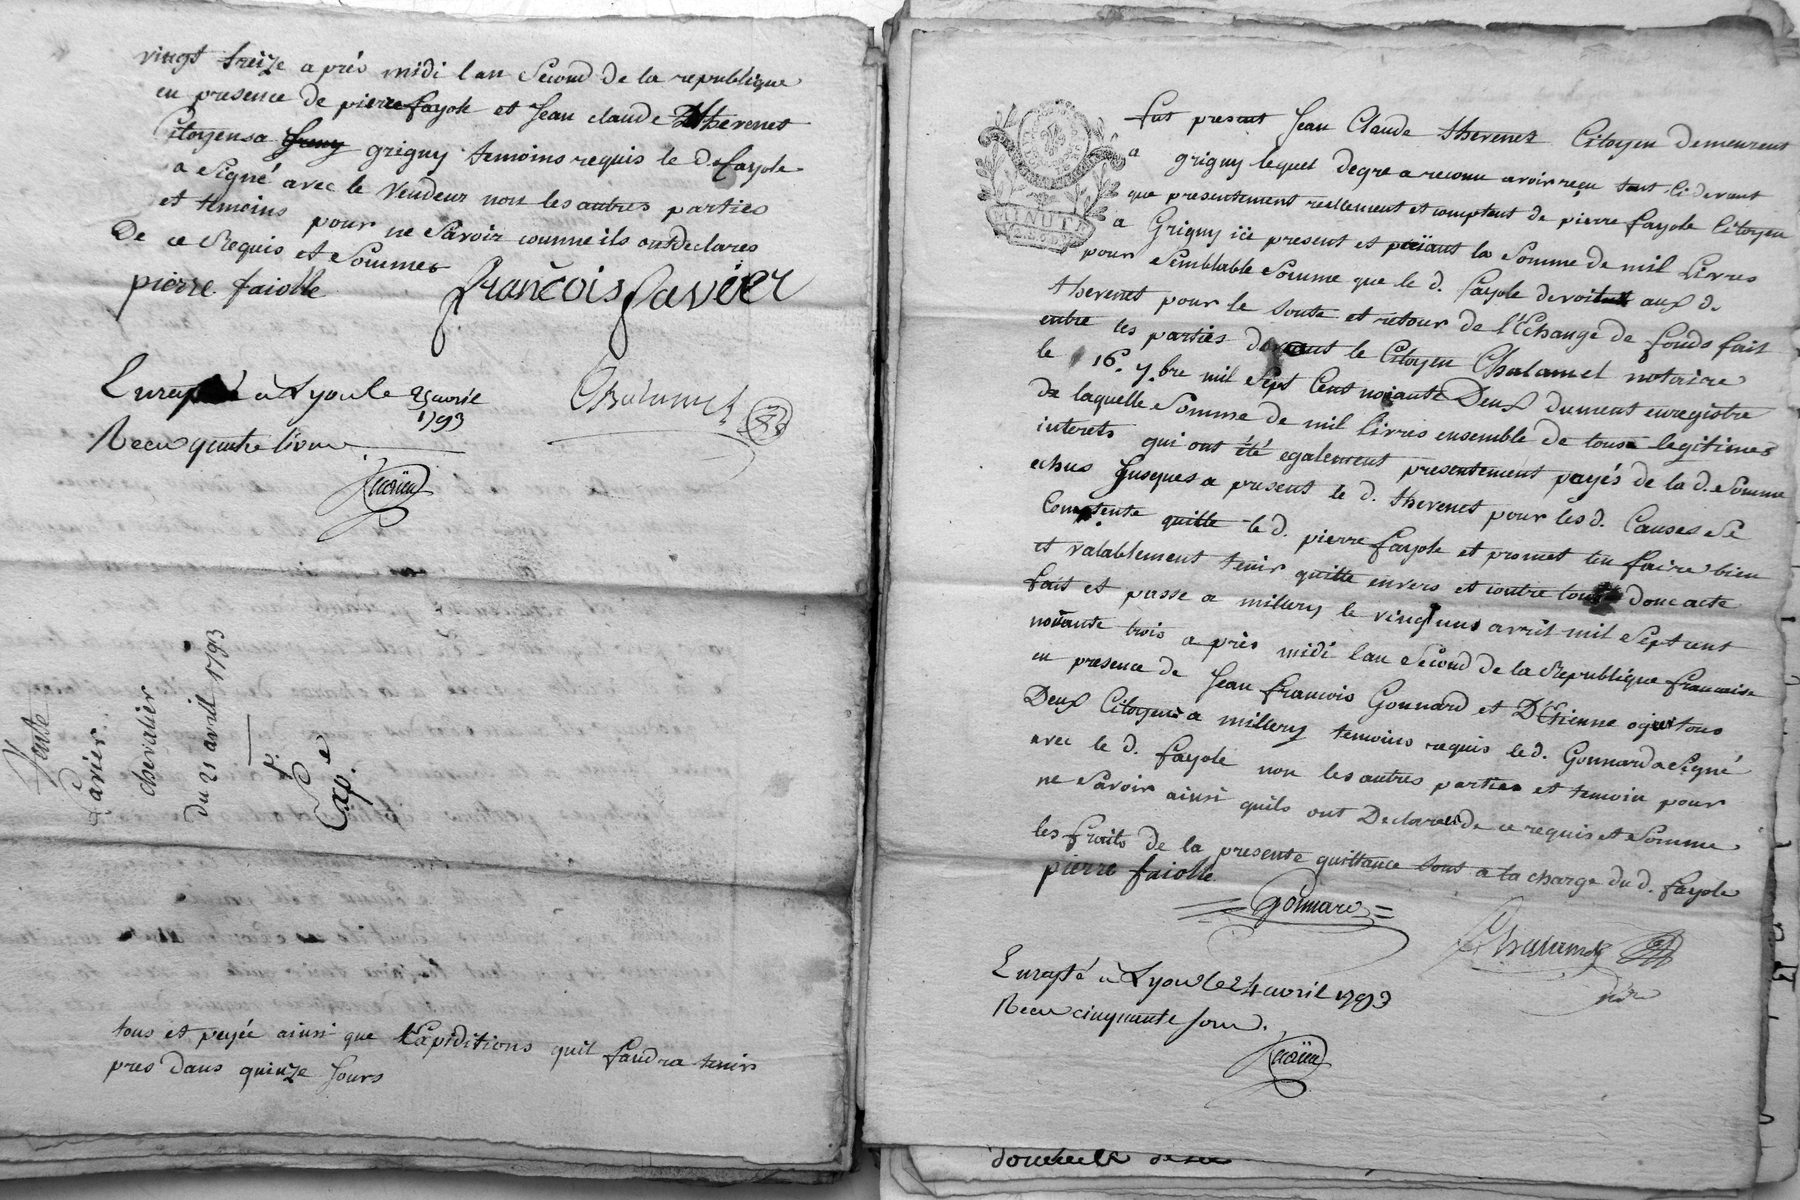 vingt treize après midi lan Second de la republique
en presence de pierre fayole et Jean claude Thevenet
Citoyens a grigny temoins requis le d. fayole
a Signé avec le Vendeur non les autres parties
et temoins pour ne Savoir comme ils ont declares
De ce Requis et Sommes
pierre faiolle françois Savier
Chalamel
Enregté à Lyon le 25 avril
1793
Recu quatre livres
Vente
Savier
chevalier
du 21 avril 1793
p.
Exp. e
tous et payée ainsi que Expiditions quil faudra tenir
pres dans quinze Jours
Fut present Jean Claude thevenet Citoyen demeurent
a grigny lequel degre a reconu avoir reçu tant ci devant
que presentement reellement et comptent de pierre fayole Citoyen
a Grigny ici present et la Somme de mil Livres
MINUTE
pour Semblable Somme que le d. fayole devoit aux d.
thevenet pour le Soute et retour de l'Echange de fonds fait
entre les parties devant le Citoyen Chalamel notaire
le 16e 7.bre mil Sept Cent noiante Deux dument enregistre
de laquelle Somme de mil livres ensemble de tous legitimes
interets qui ont été egalement presentement payés de la d. Somme
echus Jusques a present le d. thevenet pour les d. Causes Se
Comptente quitte le d. pierre fayole et promet len faire bien
et valablement tenir quitte envers et contre tous donc acte
fait et passe a millery le vingt uns avril mil Sept cent
noiante trois après midi lan Second de la Republique francaise
en presence de Jean francois Gonnard et D'Etienne tous
Deux Citoyens a millery temoins requis le d. Gonnard a Signé
avec le d. fayole non les autres parties et temoin pour
ne Savoir ainsi quils ont Declares de ce requis et Sommé
les fraits de la presente quittance Sont a la charge du d. fayole
pierre faiolle
gonnard
Chalamel
Enregté à Lyon le 24 avril 1793
Recu cinquante Sous.